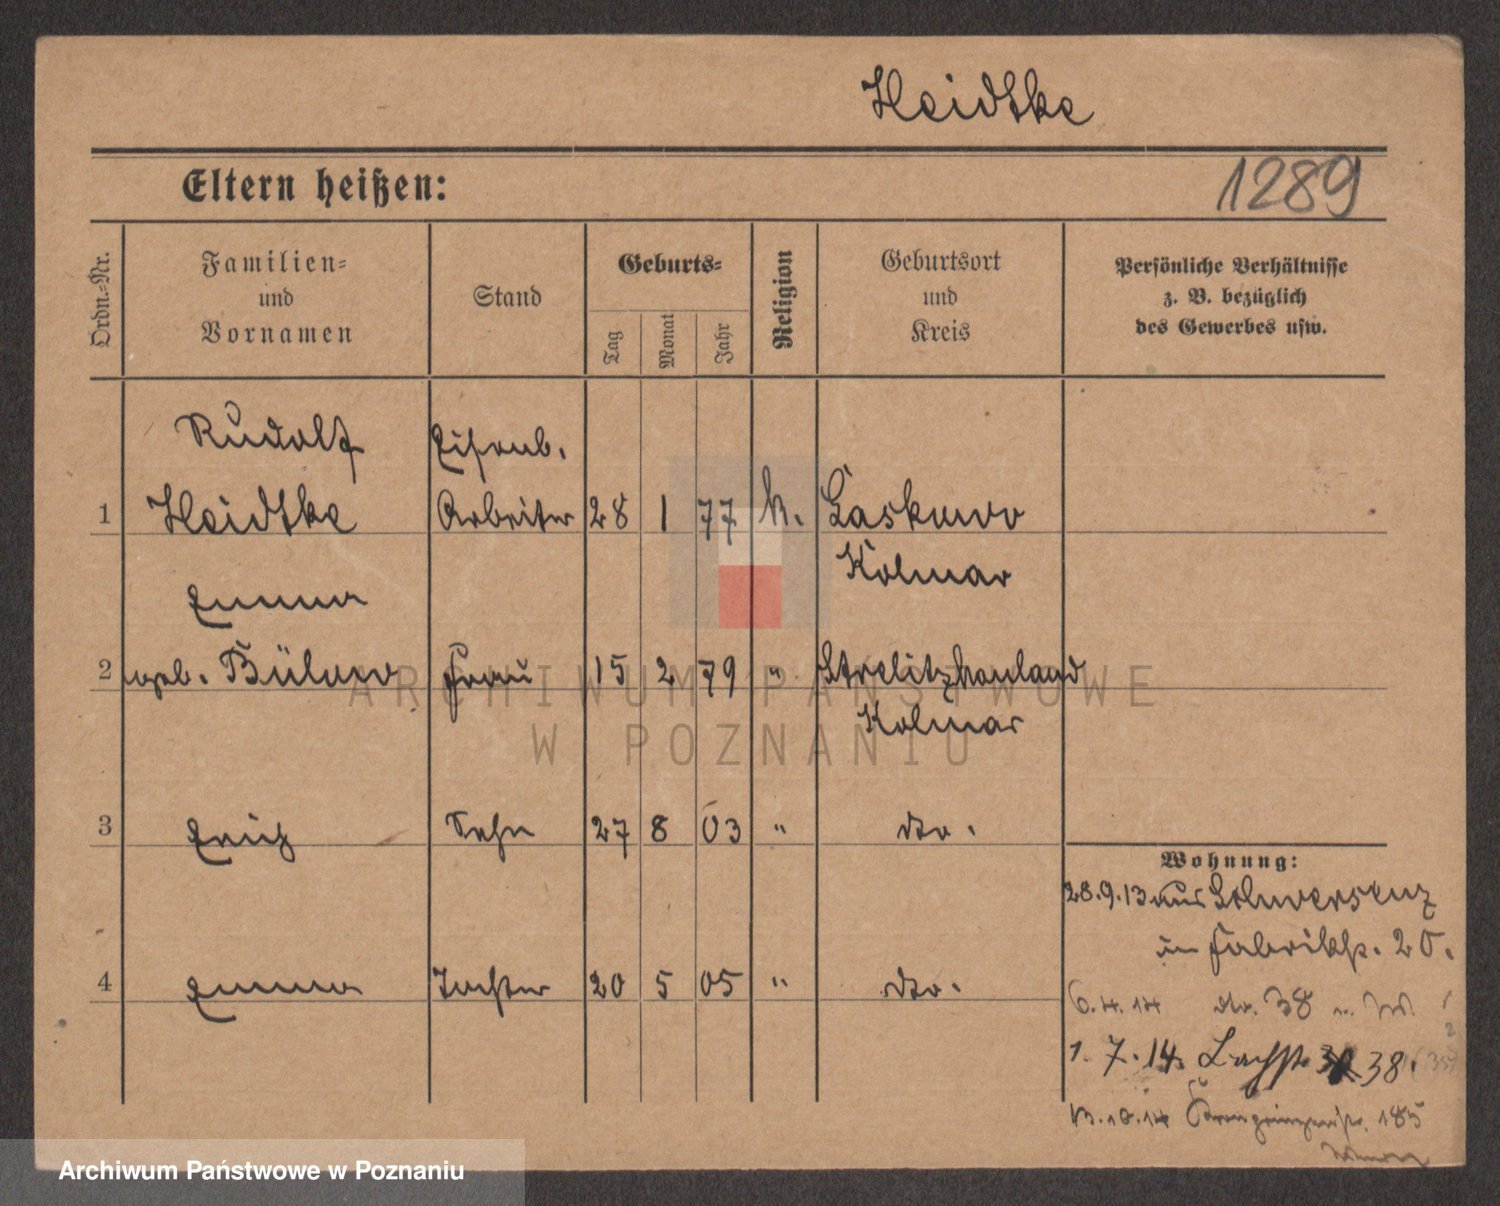 Heidtke
Eltern heißen:
1289
Ordn.-Nr.
Familien-
und
Vornamen
Stand
Geburts-
Tag
Monat
Jahr
Religion
Geburtsort
und
Kreis
Persönliche Verhältnisse
z. B. bezüglich
des Gewerbes usw.
Rudolf Eisenb.
1 Heidtke Arbeiter 28 1 77 k. Laskowo
Kolmar
Emma
2 geb. Bülow Frau 15 2 79 " Strelitzhauland
Kolmar
3 Erich Sohn 27 8 03 " dto.
Wohnung:
28.9.13 aus Schwersenz
in Fabrikstr. 20.
4 Emma Tochter 20 5 05 " dto.
6.4.14 dto. 38
1.7.14. Bachstr. 38.
10.14 Kronprinzenstr. 185
ARCHIWUM PAŃSTWOWE
W POZNANIU
Archiwum Państwowe w Poznaniu